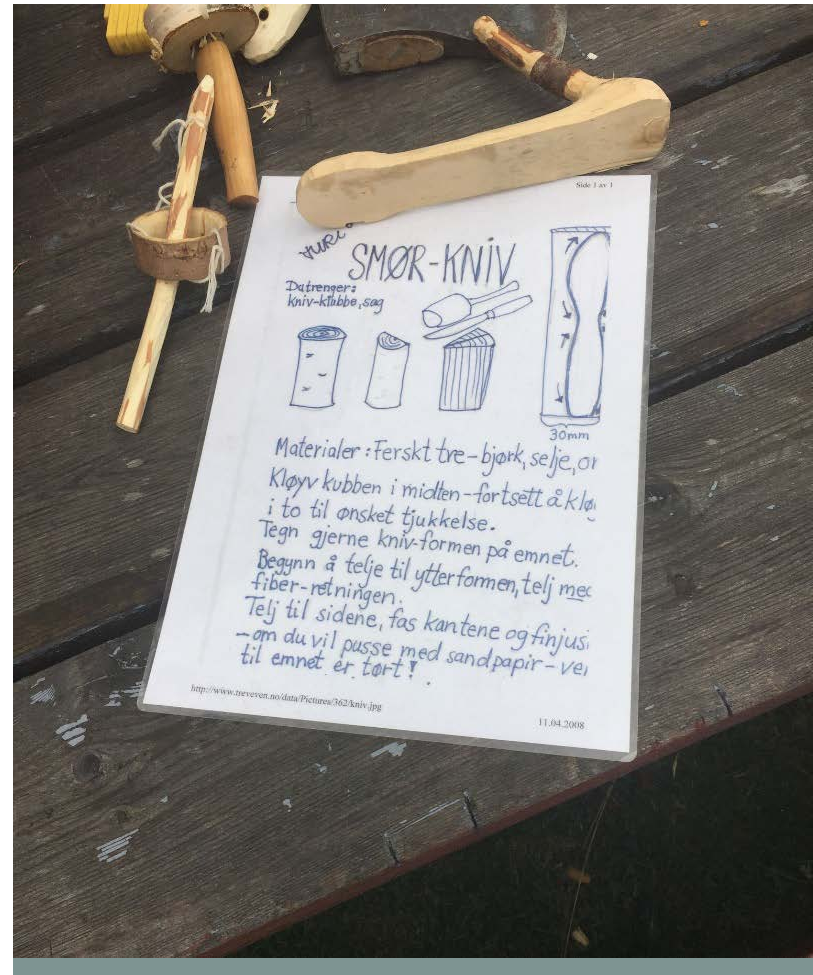 Side 1 av 1
SMØR-KNIV
Du trenger:
kniv-klubbe, sag
30mm
Materialer: Ferskt tre-bjørk, selje, or
Kløyv kubben i midten-fortsett å klø
i to til ønsket tjukkelse.
Tegn gjerne kniv-formen på emnet.
Begynn å telje til ytterformen, telj med
fiber-retningen.
Telj til sidene, fas kantene og finjus
-om du vil pusse med sandpapir-ve
til emnet er tørt!
http://www.treveven.no/data/Pictures/362/kniv.jpg
11.04.2008